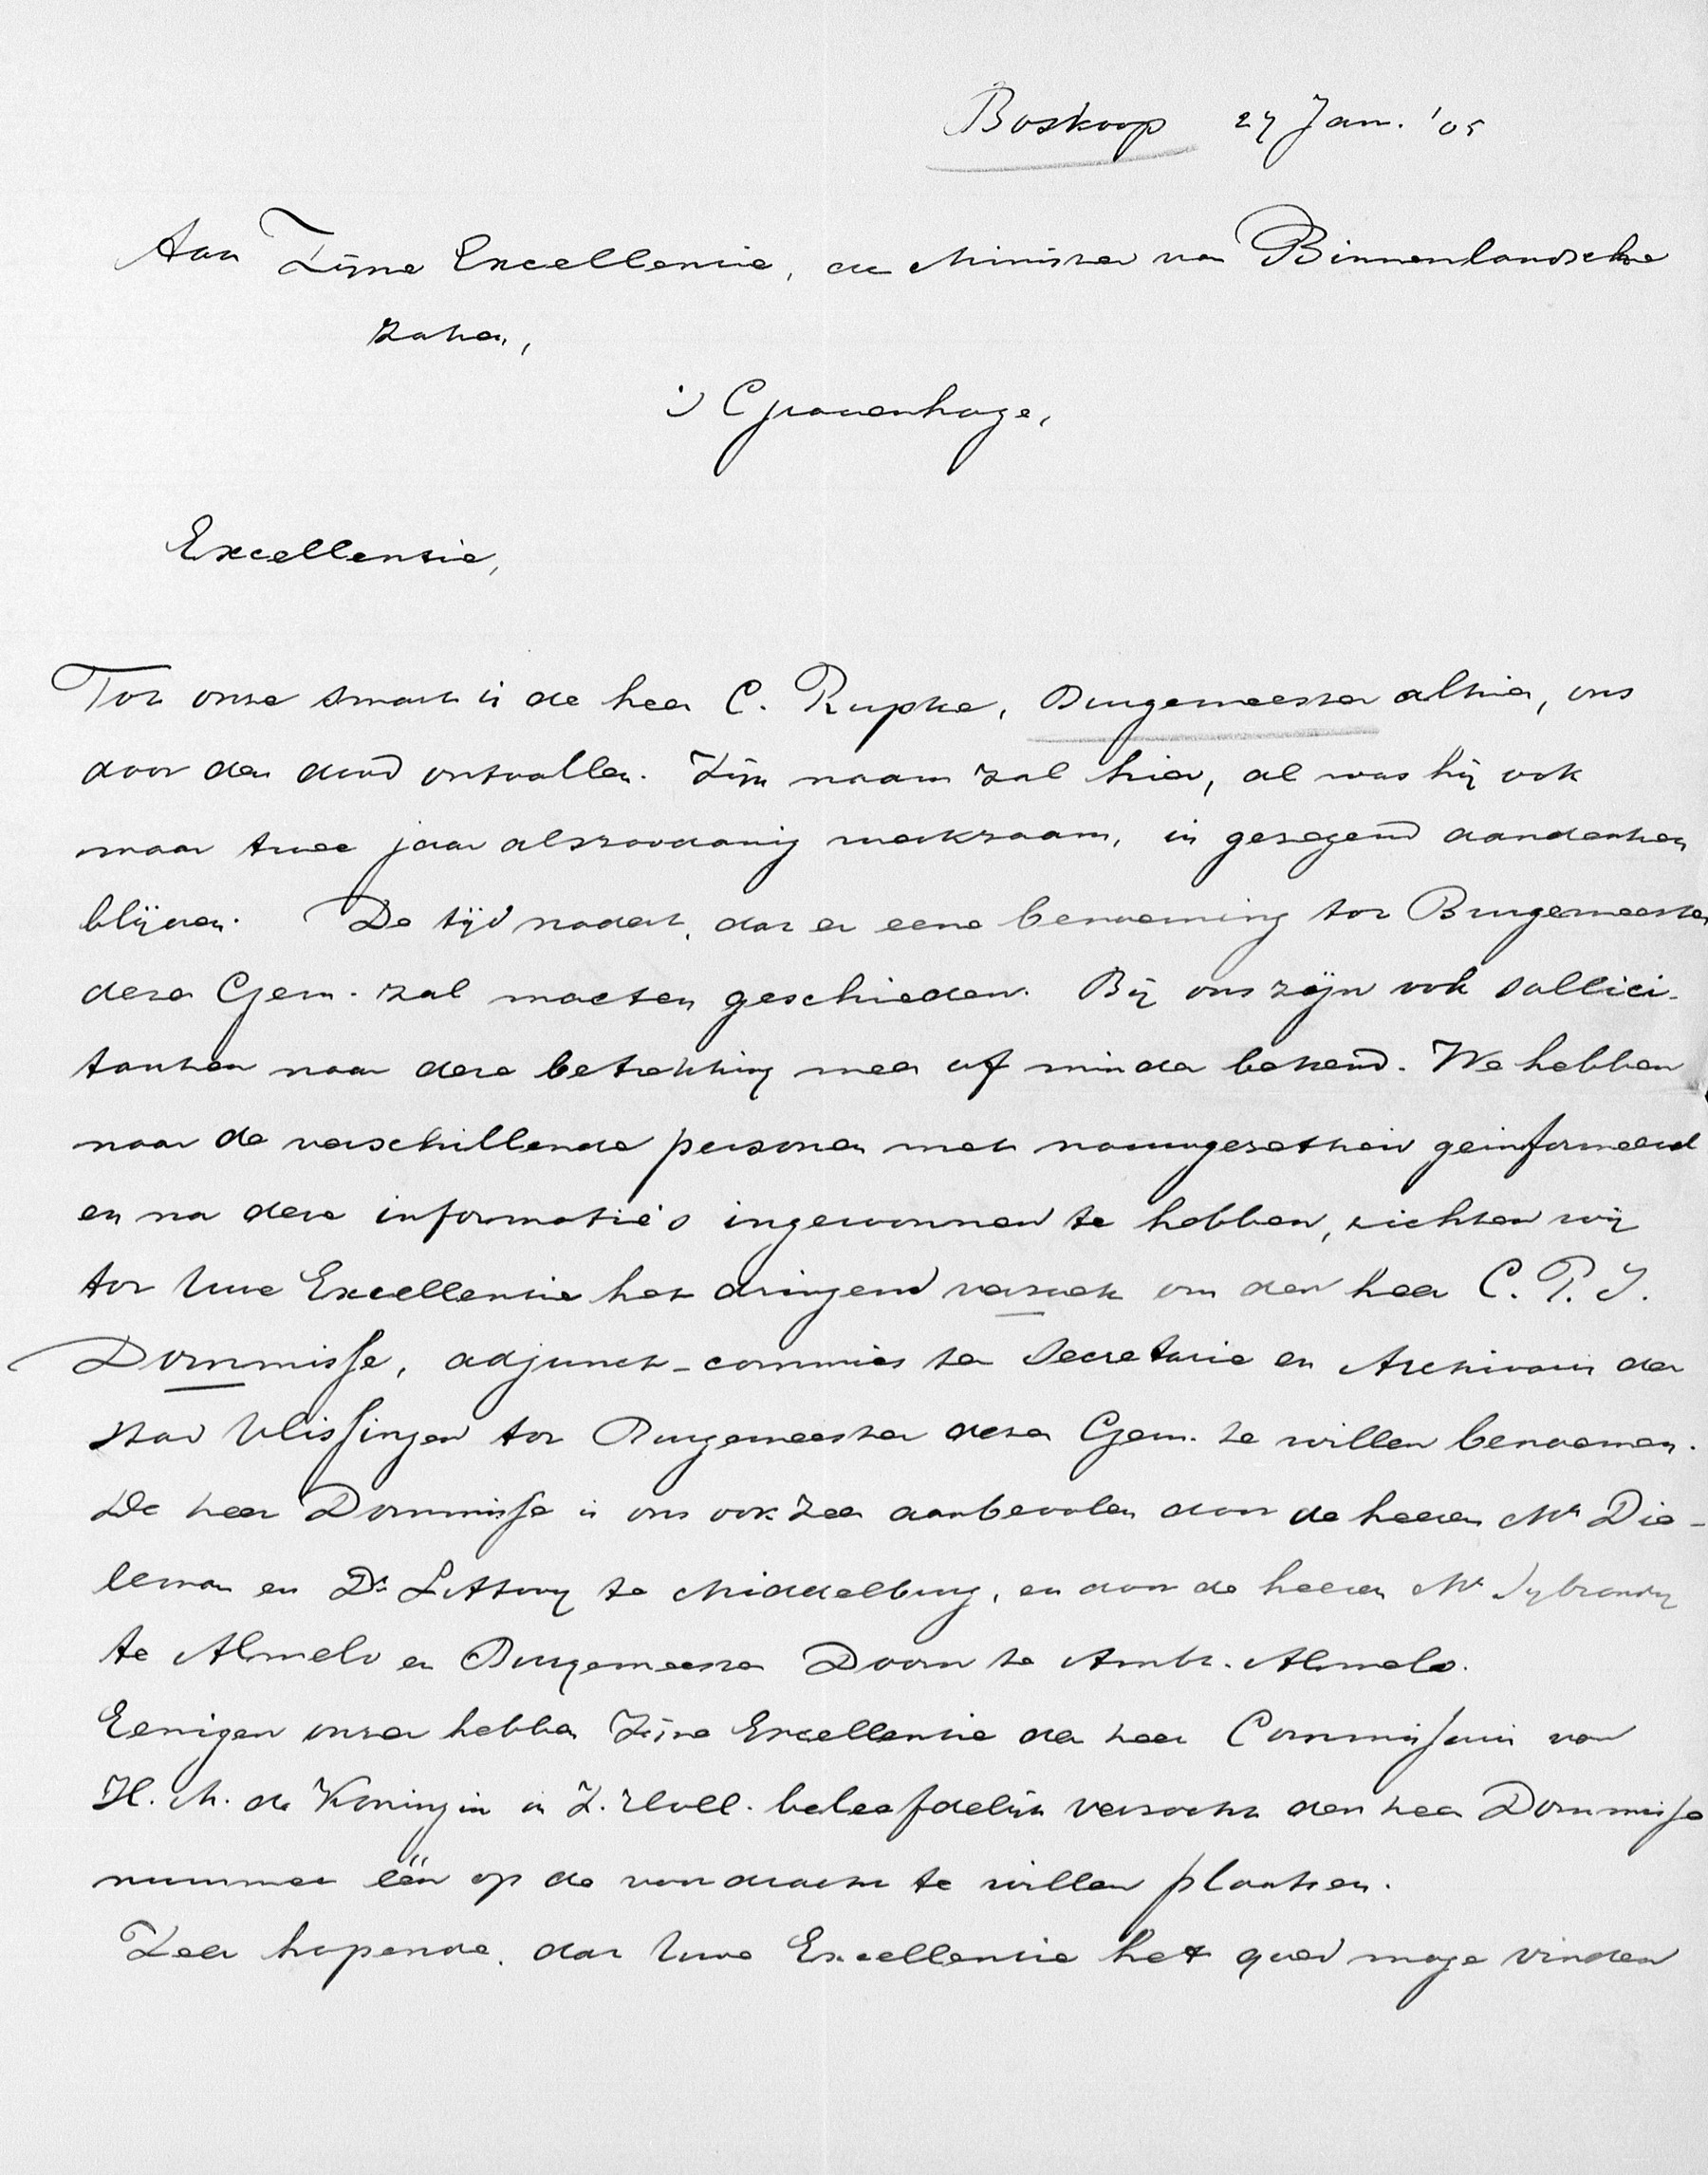 Boskoop 27 Jan. '05
Aan Zijne Excellentie, den Minister van Binnenlandsche
Zaken,
's Gravenhage,
Excellentie,
Tot onze smart is de heer C. Rupke, Burgemeester alhier, ons
door den dood ontvallen. Zijn naam zal hier, al was hij ook
maar twee jaar alszoodanig werkzaam, in gezegend aandenken
blijven. De tijd nadert, dat er eene benoeming tot Burgemeester
dezer Gem. zal moeten geschieden. Bij ons zijn ook sollici-
tanten naar deze betrekking meer of minder bekend. We hebben
naar de verschillende personen met nauwgezetheid geinformeerd
en na deze informatie's ingewonnen te hebben, richten wij
tot Uwe Excellentie het dringend verzoek om den heer C. P. I.
Dommisse, adjunct-commies ter Secretarie en Archivaris der
stad Vlissingen tot Burgemeester dezer Gem. te willen benoemen.
De heer Dommisse is ons ook zeer aanbevolen door de heeren Mr Die-
leman en Dr. Littooy te Middelburg, en door de heeren Mr Sybrandy
te Almelo en Burgemeester Doorn te Ambt-Almelo.
Eenigen onzer hebben Zijne Excellentie den heer Commissaris van
H. M. de Koningin in Z. Holl. beleefdelijk verzocht den heer Dommisse
nummer één op de voordracht te willen plaatsen.
Zeer hopende, dat Uwe Excellentie het goed moge vinden